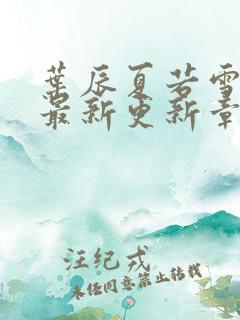 葉辰夏若雪
最新更新章
汪纪戎
未经同意禁止转载